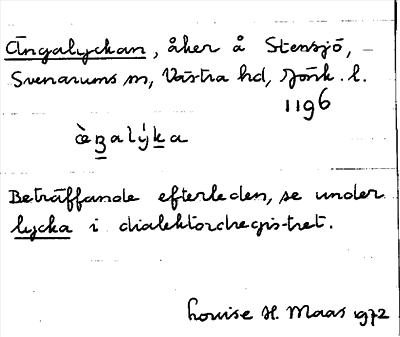 Ängalyckan, åker å Stensjö,
Svenarums sn, Västra hd, Jönk. l.
1196
æ̀ŋalýka
Beträffande efterleden, se under
lycka i dialektordregistret.
Louise H. Maas 1972